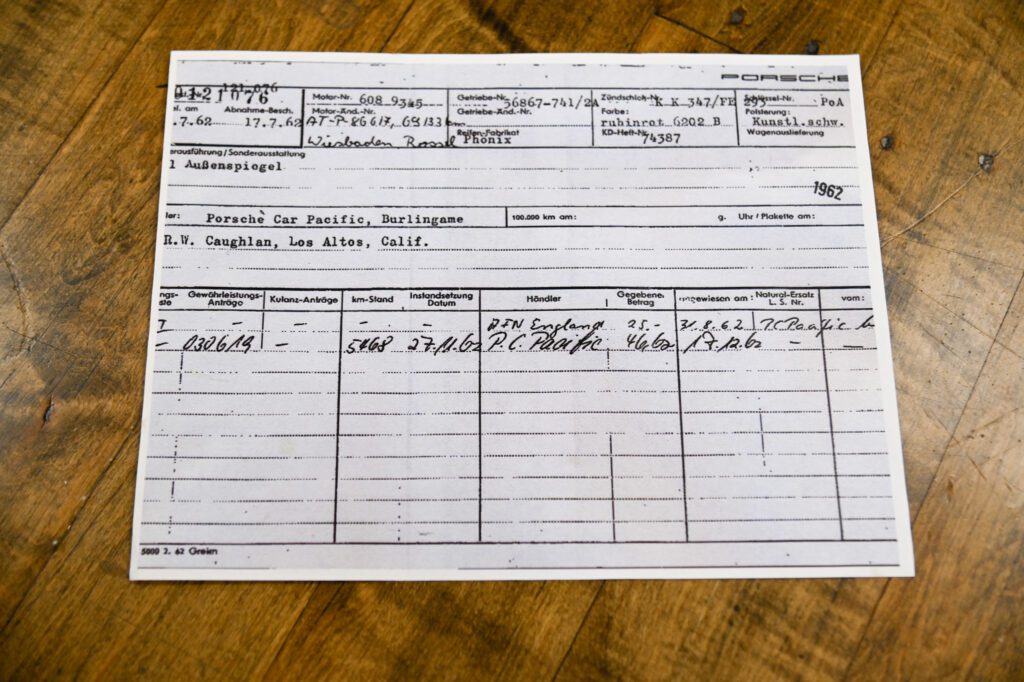 PORSCHE
121 076
0121076 Motor-Nr. 608 9345 Getriebe-Nr. 56867-741/2A Zündschloß-Nr. K K 347/FE Schlüssel-Nr. 293 PoA
am Abnahme-Besch. Motor-Änd.-Nr. Getriebe-Änd.-Nr. Farbe: Polsterung:
.7.62 17.7.62 AT-P-86617, rubinrot 6202 B Kunstl.schw.
Wiesbaden Rossel Reifen-Fabrikat Phönix KD-Heft-Nr. 74387 Wagenauslieferung
erausführung/Sonderausstattung
1 Außenspiegel
1962
ler: Porsche Car Pacific, Burlingame 100.000 km am: g. Uhr/Plakette am:
R.W. Caughlan, Los Altos, Calif.
ngs- Gewährleistungs- Kulanz-Anträge km-Stand Instandsetzung Händler Gegebene Angewiesen am: Natural-Ersatz vom:
Anträge Datum Betrag L. S. Nr.
- - - - AFN England 25.- 31.8.62 PC Pacific
- 030619 - 5468 27.11.62 P.C. Pacific 46.62 17.12.62 - -
5000 2. 62 Greien